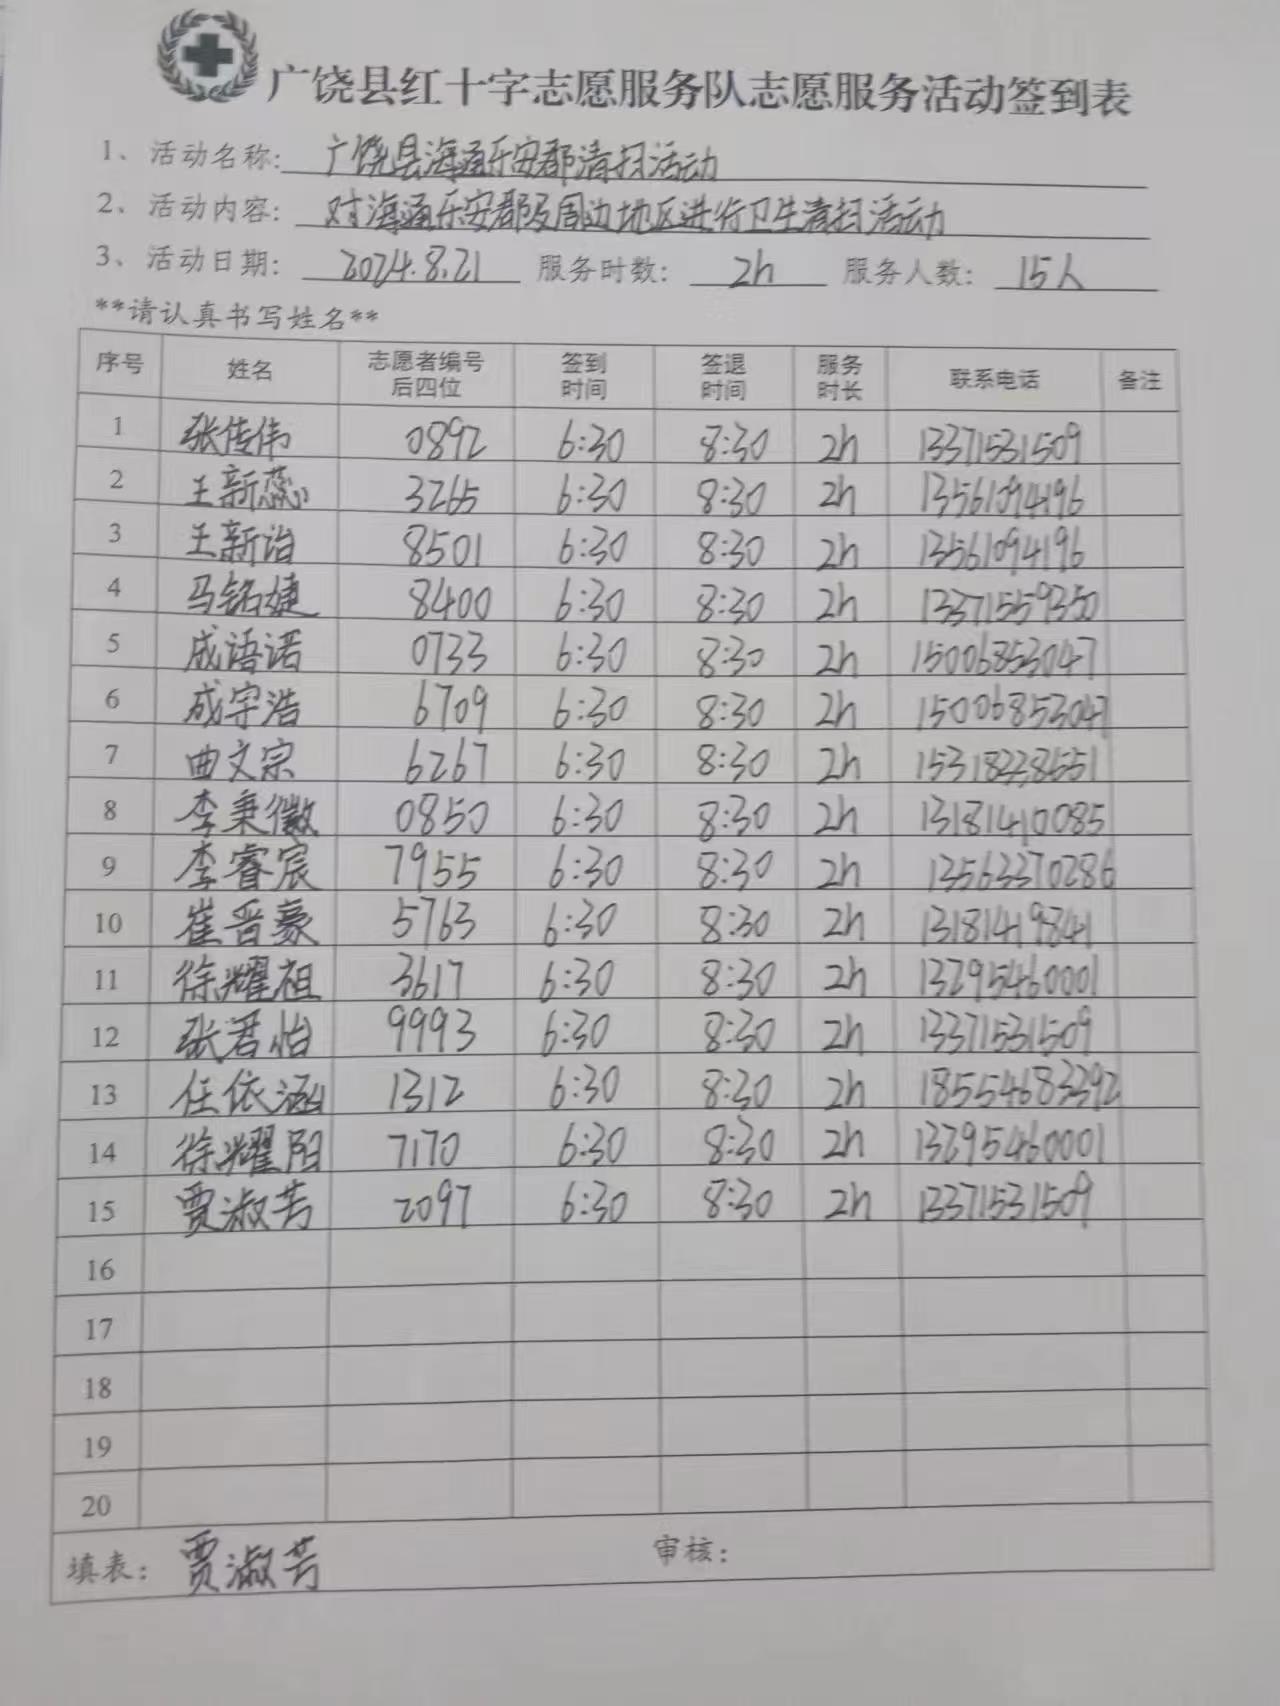 广饶县红十字志愿服务队志愿服务活动签到表
1、活动名称: 广饶县海通乐安郡清扫活动
2、活动内容: 对海通乐安郡及周边地区进行卫生清扫活动
3、活动日期: 2024.8.21 服务时数: 2h 服务人数: 15人
**请认真书写姓名**
序号 姓名 志愿者编号后四位 签到时间 签退时间 服务时长 联系电话 备注
1 张传伟 0892 6:30 8:30 2h 13371531509
2 王新蕊 3265 6:30 8:30 2h 13561094196
3 王新诒 8501 6:30 8:30 2h 13561094196
4 马铭婕 8400 6:30 8:30 2h 13371559350
5 成语诺 0733 6:30 8:30 2h 15006853047
6 成宇浩 6709 6:30 8:30 2h 15006853047
7 曲文宗 6267 6:30 8:30 2h
8 李秉徽 0850 6:30 8:30 2h 13181410085
9 李睿宸 7955 6:30 8:30 2h 13563370286
10 崔晋豪 5763 6:30 8:30 2h 13181419841
11 徐耀祖 3617 6:30 8:30 2h 13295460001
12 张君怡 9993 6:30 8:30 2h 13371531509
13 任依涵 1312 6:30 8:30 2h 18554683292
14 徐耀阳 7170 6:30 8:30 2h 13295460001
15 贾淑芳 2097 6:30 8:30 2h 13371531509
16
17
18
19
20
填表: 贾淑芳 审核: